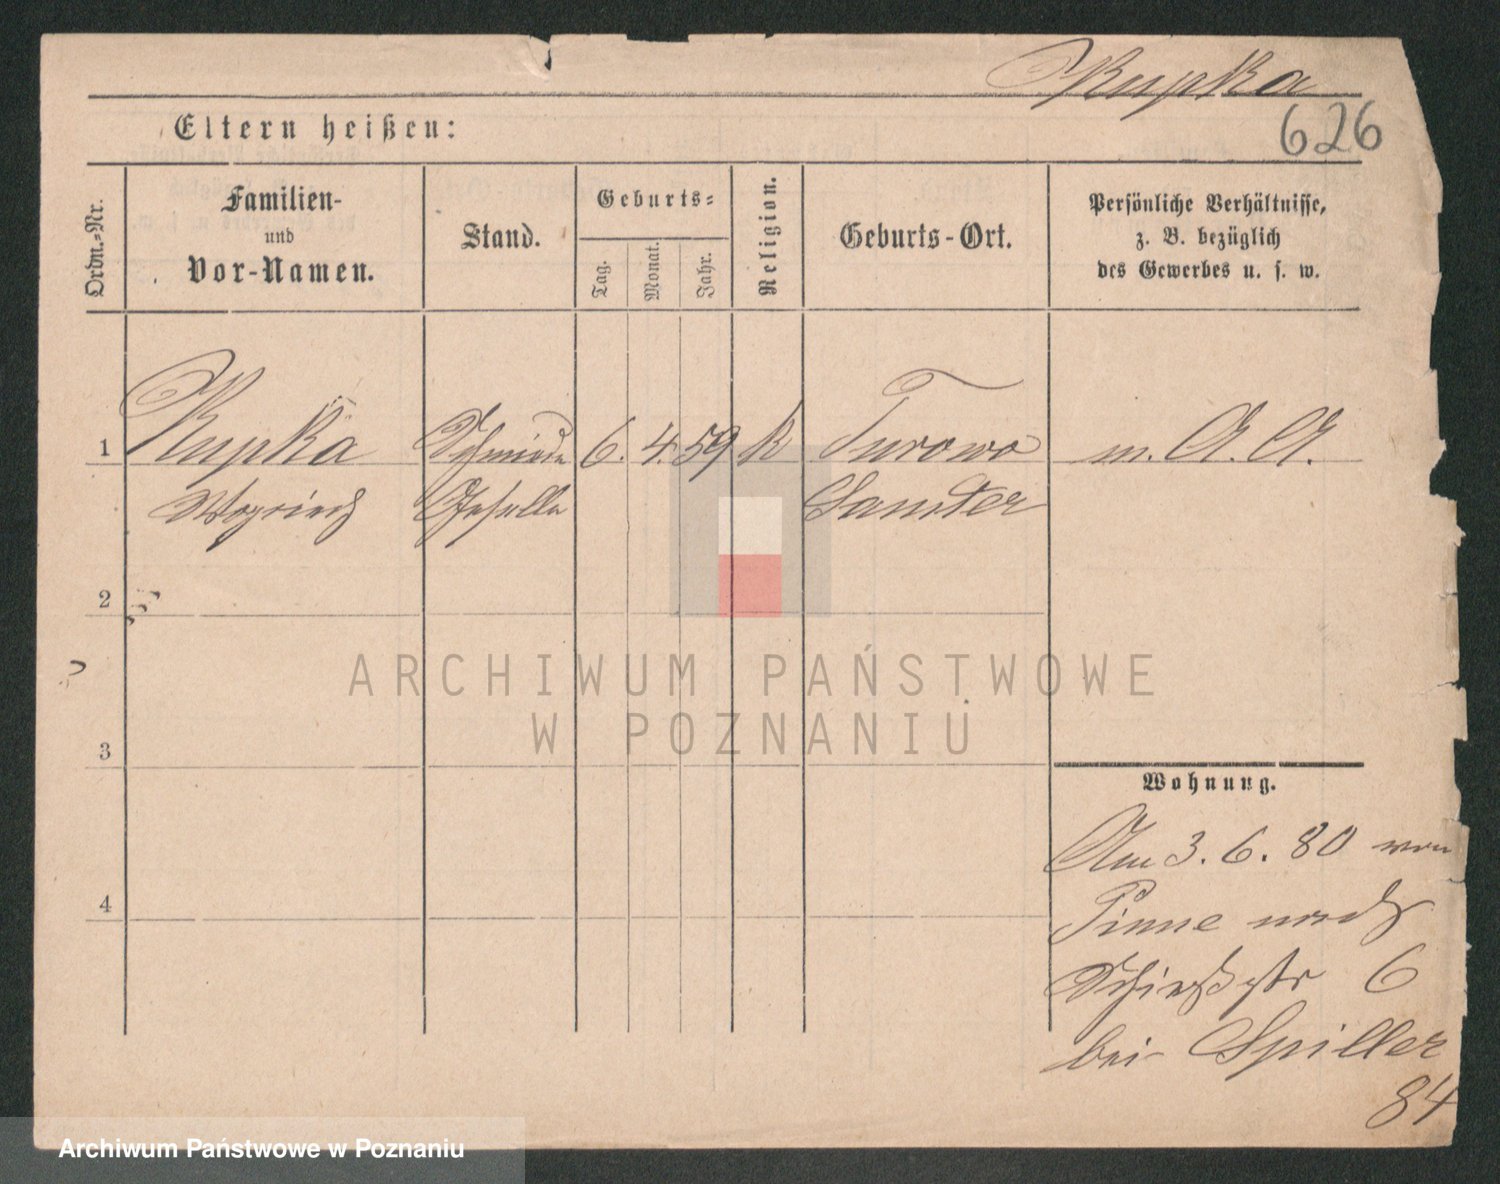 Rupka
626
Eltern heißen:
Ordn.-Nr.
Familien-
und
Vor-Namen.
Stand.
Geburts-
Tag.
Monat.
Jahr.
Religion.
Geburts-Ort.
Persönliche Verhältnisse,
z. B. bezüglich
des Gewerbes u. s. w.
1 Rupka Schmiede 6. 4. 59 k Turowo m. A. A.
Woyciech Geselle Samter
2
3
4
Wohnung.
Am 3. 6. 80 von
Pinne nach
6
bei Spiller
84
ARCHIWUM PAŃSTWOWE
W POZNANIU
Archiwum Państwowe w Poznaniu